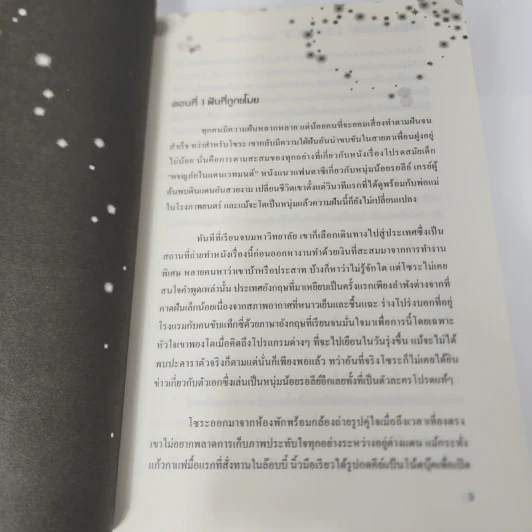 ตอนที่ 1 ฝันที่ถูกขโมย
ทุกคนมีความฝันหลากหลาย แต่น้อยคนที่จะยอมเสี่ยงทำตามฝันจน
สำเร็จ ทว่าสำหรับโซระ เขากลับมีความใฝ่ฝันอันน่าขบขันในสายตาเพื่อนฝูงอยู่
ไม่น้อย นั่นคือการตามสะสมของทุกอย่างที่เกี่ยวกับหนังเรื่องโปรดสมัยเด็ก
"ผจญภัยในแดนเวทมนต์" หนังแนวแฟนตาซีเกี่ยวกับหนุ่มน้อยรอลีย์ เกรย์ผู้
ค้นพบดินแดนอันสวยงาม เปลี่ยนชีวิตเขาตั้งแต่วินาทีแรกที่ได้ดูพร้อมกับพ่อแม่
ในโรงภาพยนตร์ และแม้จะโตเป็นหนุ่มแล้วความฝันนี้ก็ยังไม่เปลี่ยนแปลง
ทันทีที่เรียนจบมหาวิทยาลัย เขาก็เลือกเดินทางไปสู่ประเทศซึ่งเป็น
สถานที่ถ่ายทำหนังเรื่องนี้ก่อนออกหางานทำด้วยเงินที่สะสมมาจากการทำงาน
พิเศษ หลายคนหาว่าเขาบ้าหรือประสาท บ้างก็หาว่าไม่รู้จักโต แต่โซระไม่เคย
สนใจคำพูดเหล่านั้น ประเทศอังกฤษที่มาเหยียบเป็นครั้งแรกเพียงลำพังต่างจากที่
คาดฝันเล็กน้อยเนื่องจากสภาพอากาศที่หนาวเย็นและชื้นแฉะ ร่างโปร่งบอกที่อยู่
โรงแรมกับคนขับแท็กซี่ด้วยภาษาอังกฤษที่เรียนจนมั่นใจมาเพื่อการนี้โดยเฉพาะ
หัวใจเขาพองโตเมื่อคิดถึงโปรแกรมต่างๆ ที่จะไปเยือนในวันรุ่งขึ้น แม้จะไม่ได้
พบปะดาราตัวจริงก็ตามแต่นั่นก็เพียงพอแล้ว ทว่าอันที่จริงโซระก็ไม่เคยได้ยิน
ข่าวเกี่ยวกับตัวเอกซึ่งเล่นเป็นหนุ่มน้อยรอลีย์อีกเลยทั้งที่เป็นตัวละครโปรดแท้ๆ
โซระออกมาจากห้องพักพร้อมกล้องถ่ายรูปคู่ใจเมื่อถึงเวลาเที่ยงตรง
เขาไม่อยากพลาดการเก็บภาพประทับใจทุกอย่างระหว่างอยู่ต่างแดน แม้กระทั่ง
แก้วกาแฟมื้อแรกที่สั่งทานในล็อบบี้ นิ้วมือเรียวใต้รูป
9